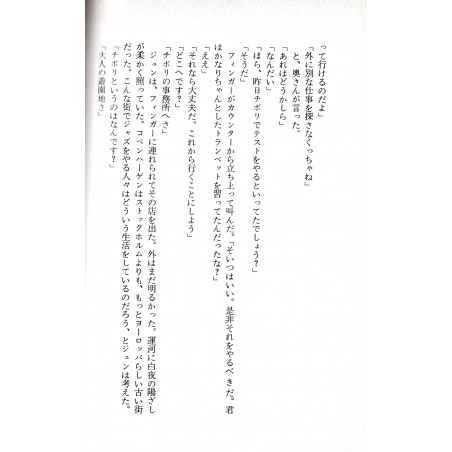 って行けるのだよ」
「外に別な仕事を探さなくっちゃね」
と、奥さんが言った。
「あれはどうかしら」
「なんだい」
「ほら、昨日チボリでテストをやるといってたでしょう？」
「そうだ」
フィンガーがカウンターから立ち上って叫んだ。「そいつはいい。是非それをやるべきだ。君
はかなりちゃんとしたトランペットを習ってたんだったな？」
「ええ」
「それなら大丈夫だ。これから行くことにしよう」
「どこへです？」
「チボリの事務所へさ」
ジュンは、フィンガーに連れられてその店を出た。外はまだ明るかった。運河に白夜の陽ざし
が柔かく照っていた。コペンハーゲンはストックホルムよりも、もっとヨーロッパらしい古い街
だった。こんな街でジャズをやる人々はどういう生活をしているのだろう、とジュンは考えた。
「チボリというのはなんです？」
「大人の遊園地さ」